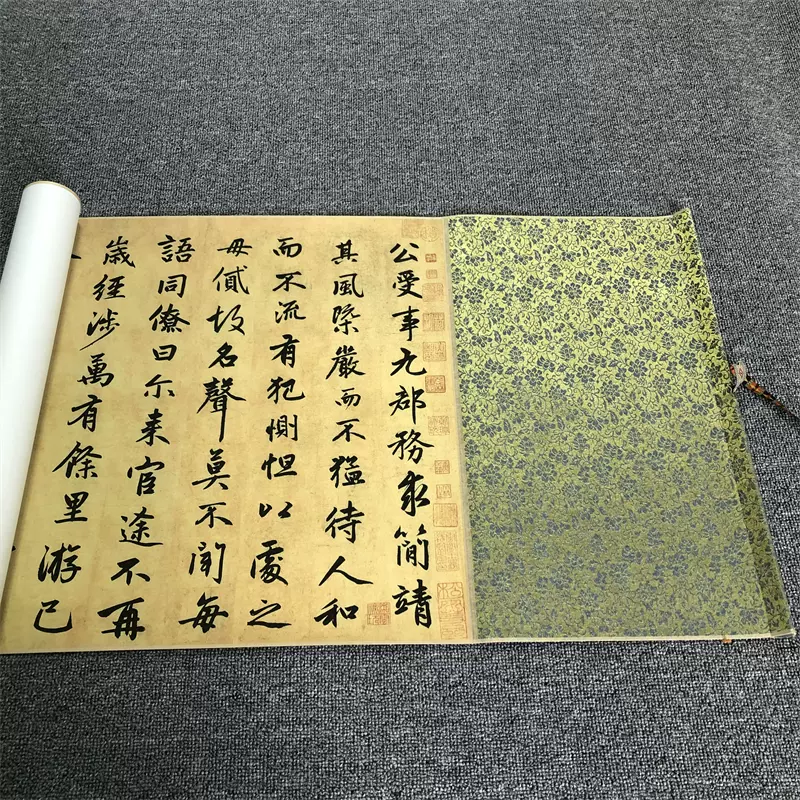 公受事九郡務求簡靖
其風槩嚴而不猛待人和
而不流有犯惻怛以處之
毋貳故名聲莫不聞每
語同僚曰尒来官途不再
歲經涉萬有餘里游已